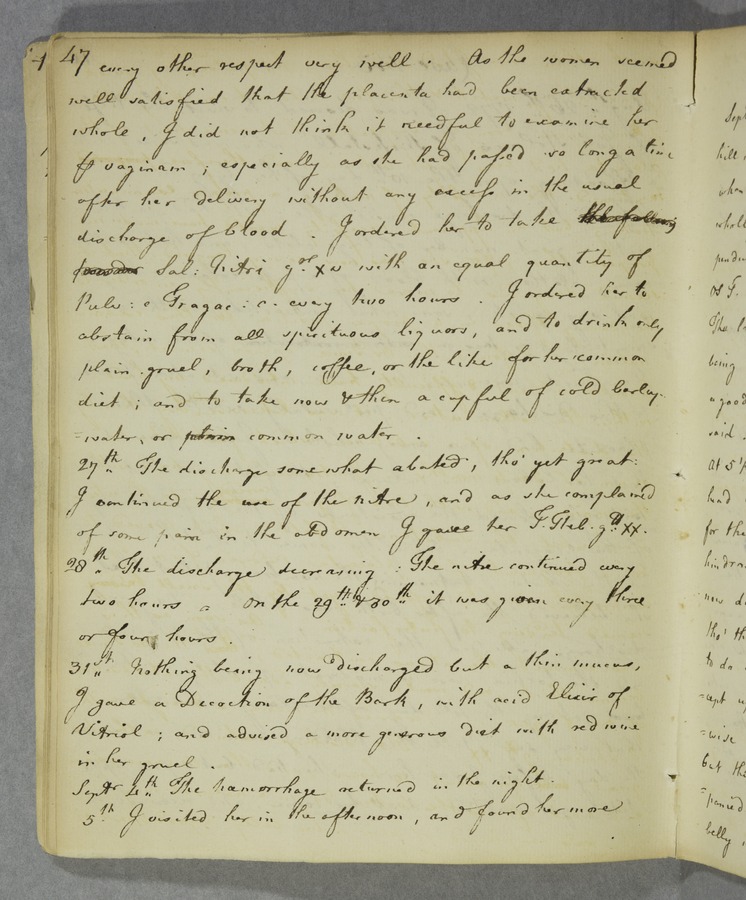 47
every other respect very well. As the women seemed
well satisfied that the placenta had been extracted
whole, I did not think it needful to examine her
p vaginam; especially as she had passed so long a time
after her delivery without any excess in the usual
discharge of blood. I ordered her to take the following
powder Sal: Nitri gr xv with an equal quantity of
Pulv: e Tragac: c. every two hours. I ordered her to
abstain from all spirituous liquors, and to drink only
plain gruel, broth, coffee, or the like for her common
diet; and to take now & then a cupful of cold barley-
=water, or plain common water.
27th. The discharge somewhat abated, tho' yet great.
I continued the use of the nitre, and as she complained
of some pain in the abdomen I gave her T. Theb. gtt xx.
28th. The discharge decreasing: The nitre continued every
two hours. On the 29th & 30th it was given every three
or four hours.
31st. Nothing being now discharged but a thin mucus,
I gave a Decoction of the Bark, with acid Elixir of
Vitriol; and advised a more generous diet with red wine
in her gruel.
Septr 4th. The hæmorrhage returned in the night.
5th I visited her in the afternoon, and found her more
Sept
kill
when
whol
of T.
The
being
a good
said
at 5
had
for the
hindran
now
tho' th
to do
=cept
=wise
but th
=panied
belly,